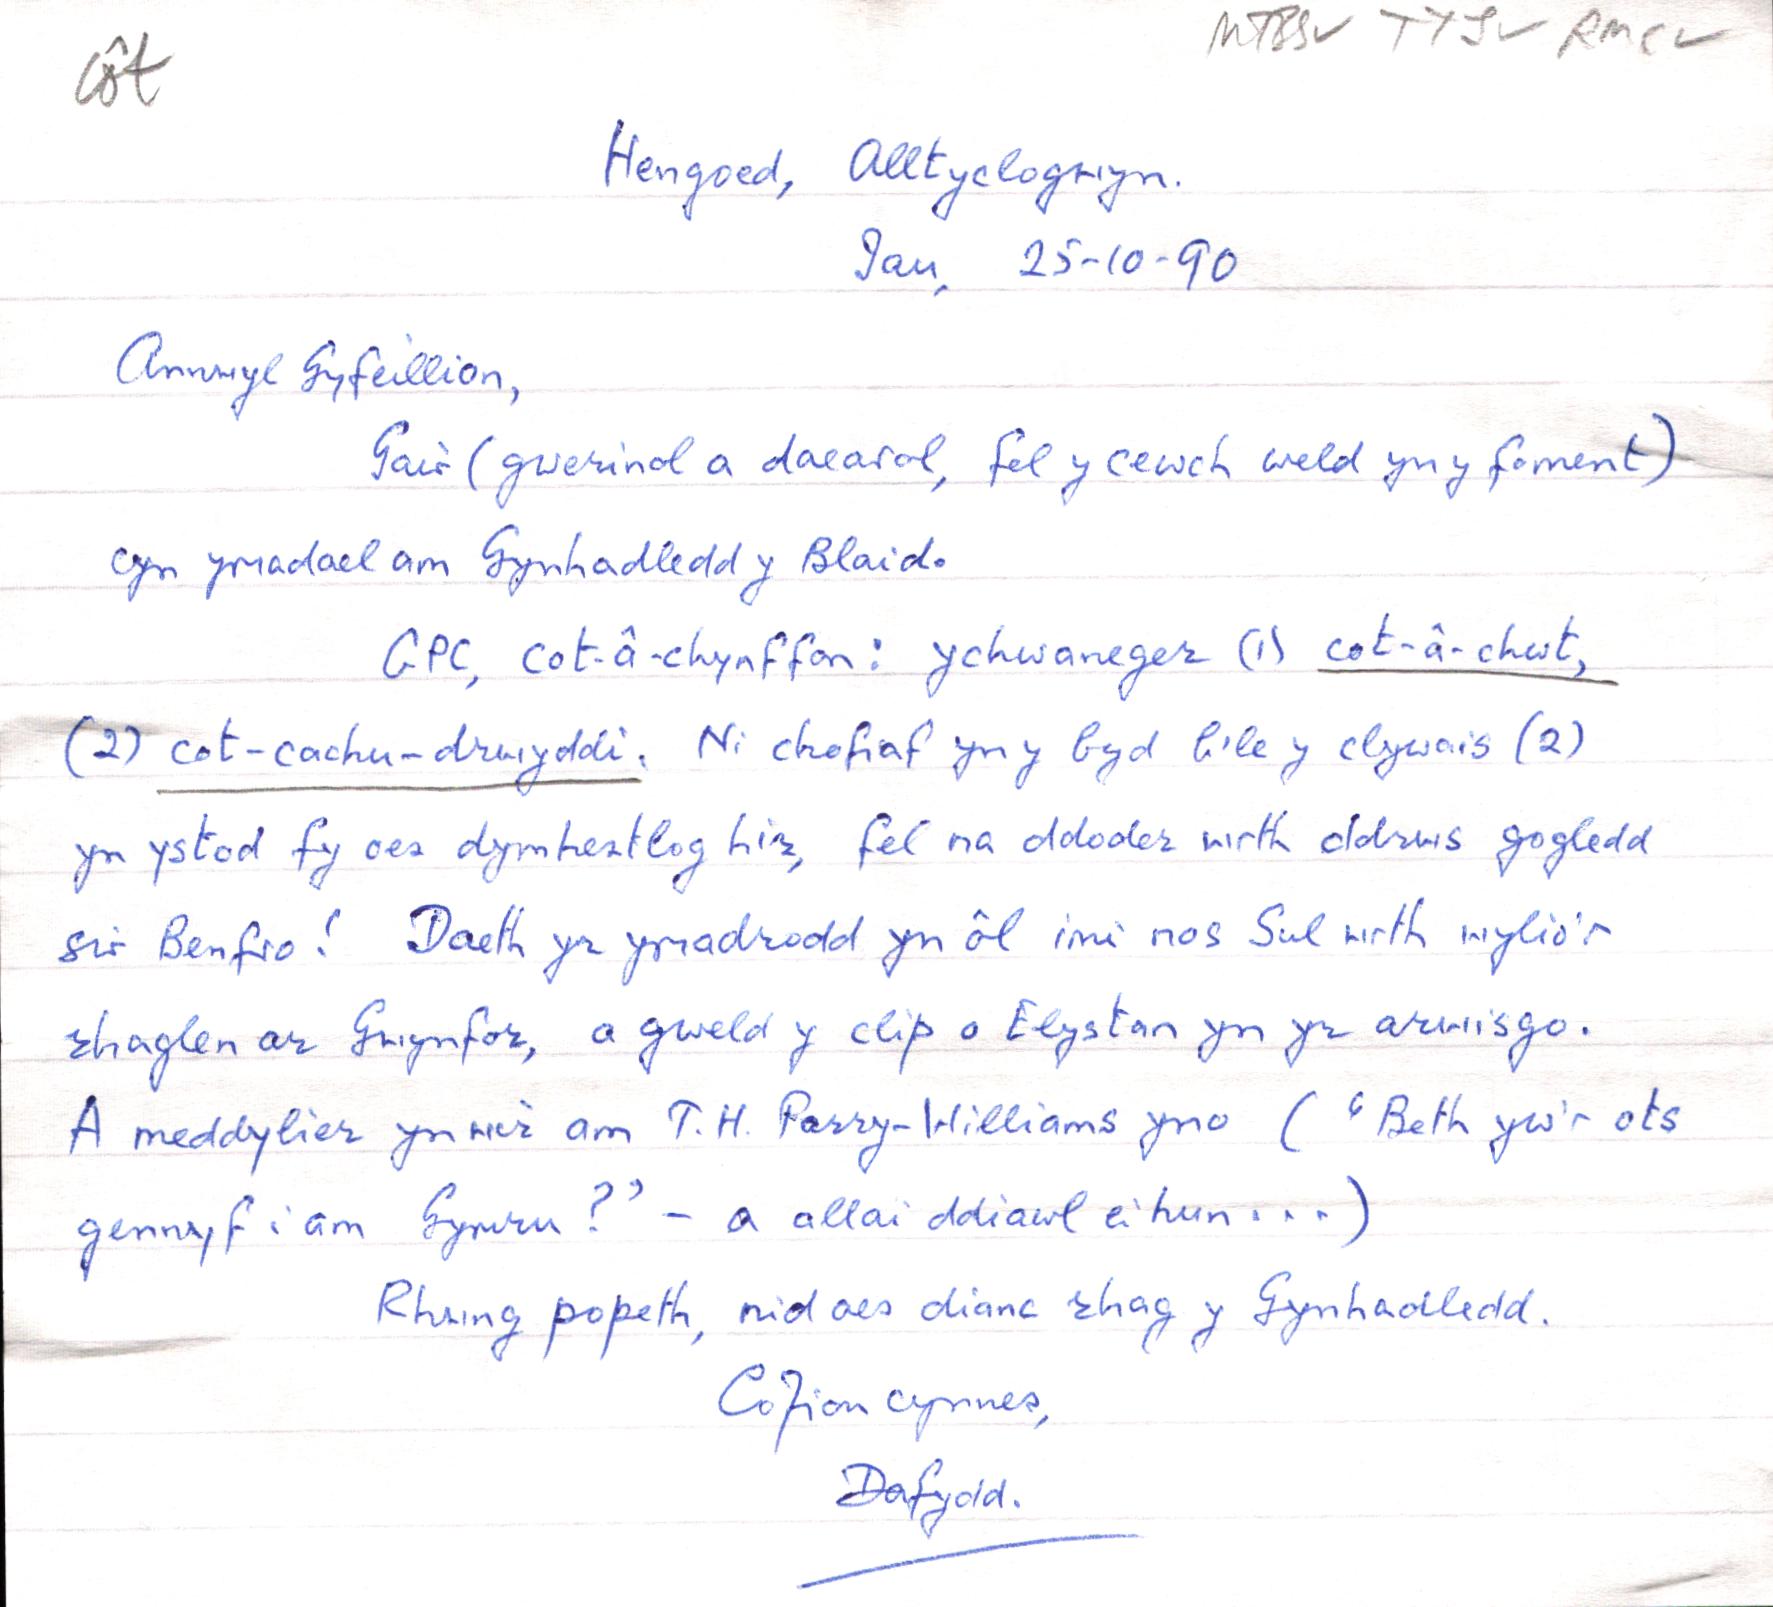 côt
MTBS✓ TYJ✓ RMC✓
Hengoed, Alltyclogwyn.
Iau, 25-10-90
Annwyl Gyfeillion,
Gair (gwerinol a daearol, fel y cewch weld yn y foment)
cyn ymadael am Gynhadledd y Blaid.
GPC, cot-â-chynffon: ychwaneger (1) cot-â-chwt,
(2) cot-cachu-drwyddi. Ni chofiaf yn y byd b'le y clywais (2)
yn ystod fy oes dymhestlog hir, fel na ddoder wrth ddrws gogledd
sir Benfro! Daeth yr ymadrodd yn ôl imi nos Sul wrth wylio'r
rhaglen ar Gwynfor, a gweld y clip o Elystan yn yr arwisgo.
A meddylier yn wir am T.H. Parry-Williams yno ('Beth yw'r ots
gennyf i am Gymru?' - a allai ddiawl ei hun . . . )
Rhwng popeth, nid oes dianc rhag y Gynhadledd.
Cofion cynnes,
Dafydd.